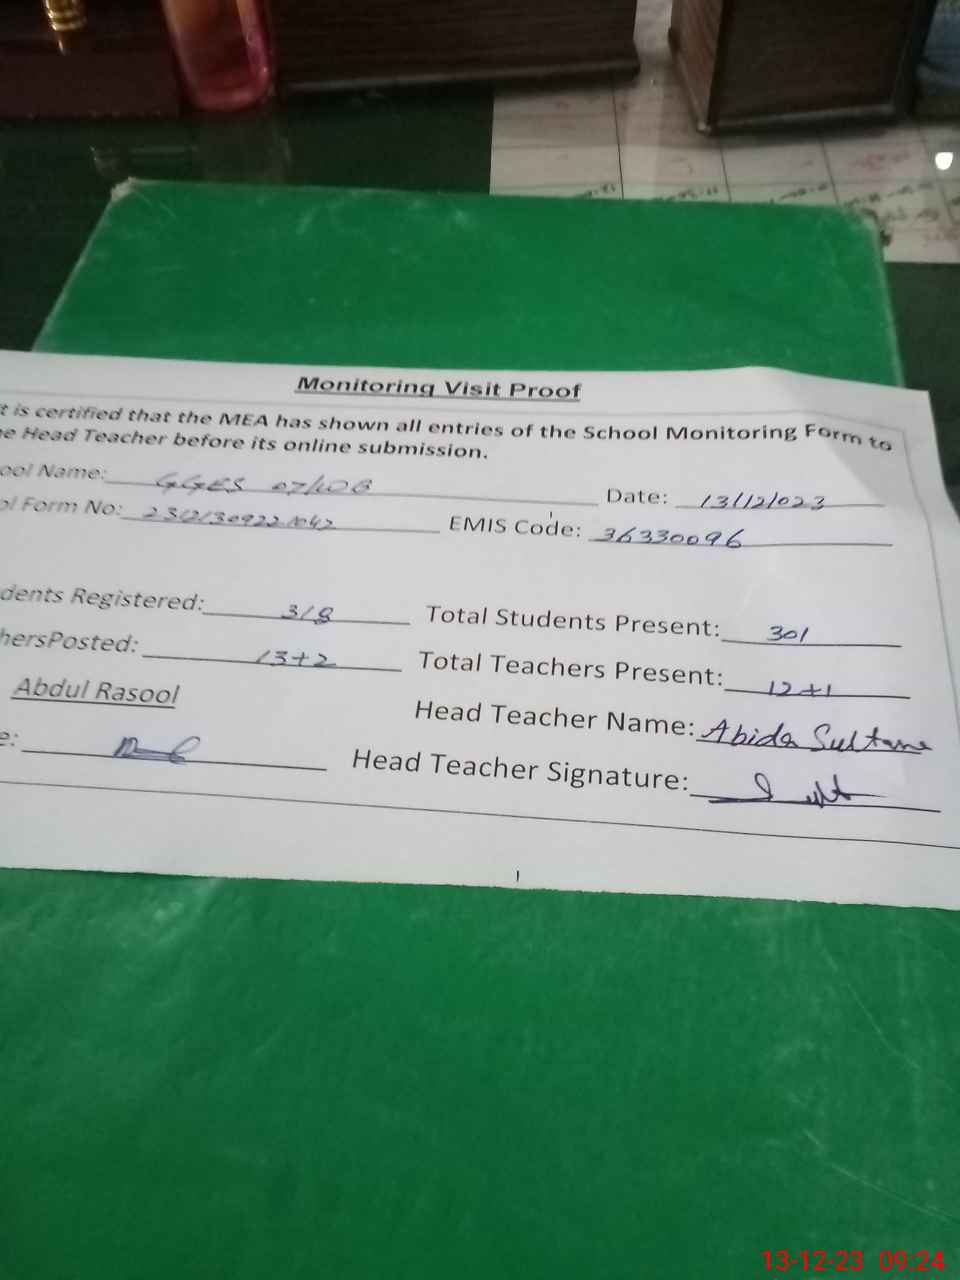 Monitoring Visit Proof
t is certified that the MEA has shown all entries of the School Monitoring Form to
e Head Teacher before its online submission.
ool Name: GGES 07/10B Date: 13/12/023
ol Form No: 23121309221042 EMIS Code: 36330096
dents Registered: 318 Total Students Present: 301
hersPosted: 13+2 Total Teachers Present: 12+1
Abdul Rasool Head Teacher Name: Abida Sultana
e: Head Teacher Signature:
13-12-23 09:24